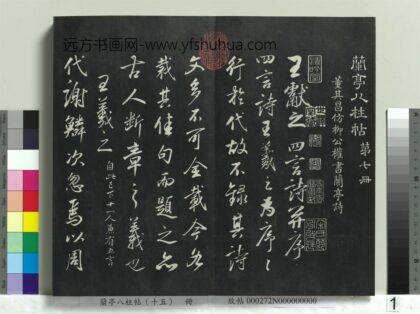 远方书画网-www.yfshuhua.com
蘭亭八柱帖 第七冊
董其昌仿柳公權書蘭亭詩
王獻之四言詩并序
四言詩王羲之為序序
行於代故不錄其詩
文多不可全載今各
裁其佳句而題之亦
古人斷章之義也
王羲之 自此已下十一人兼有五言
代謝鱗次忽焉以周
蘭亭八柱帖(十五) 冊
故帖 000272N000000000
1